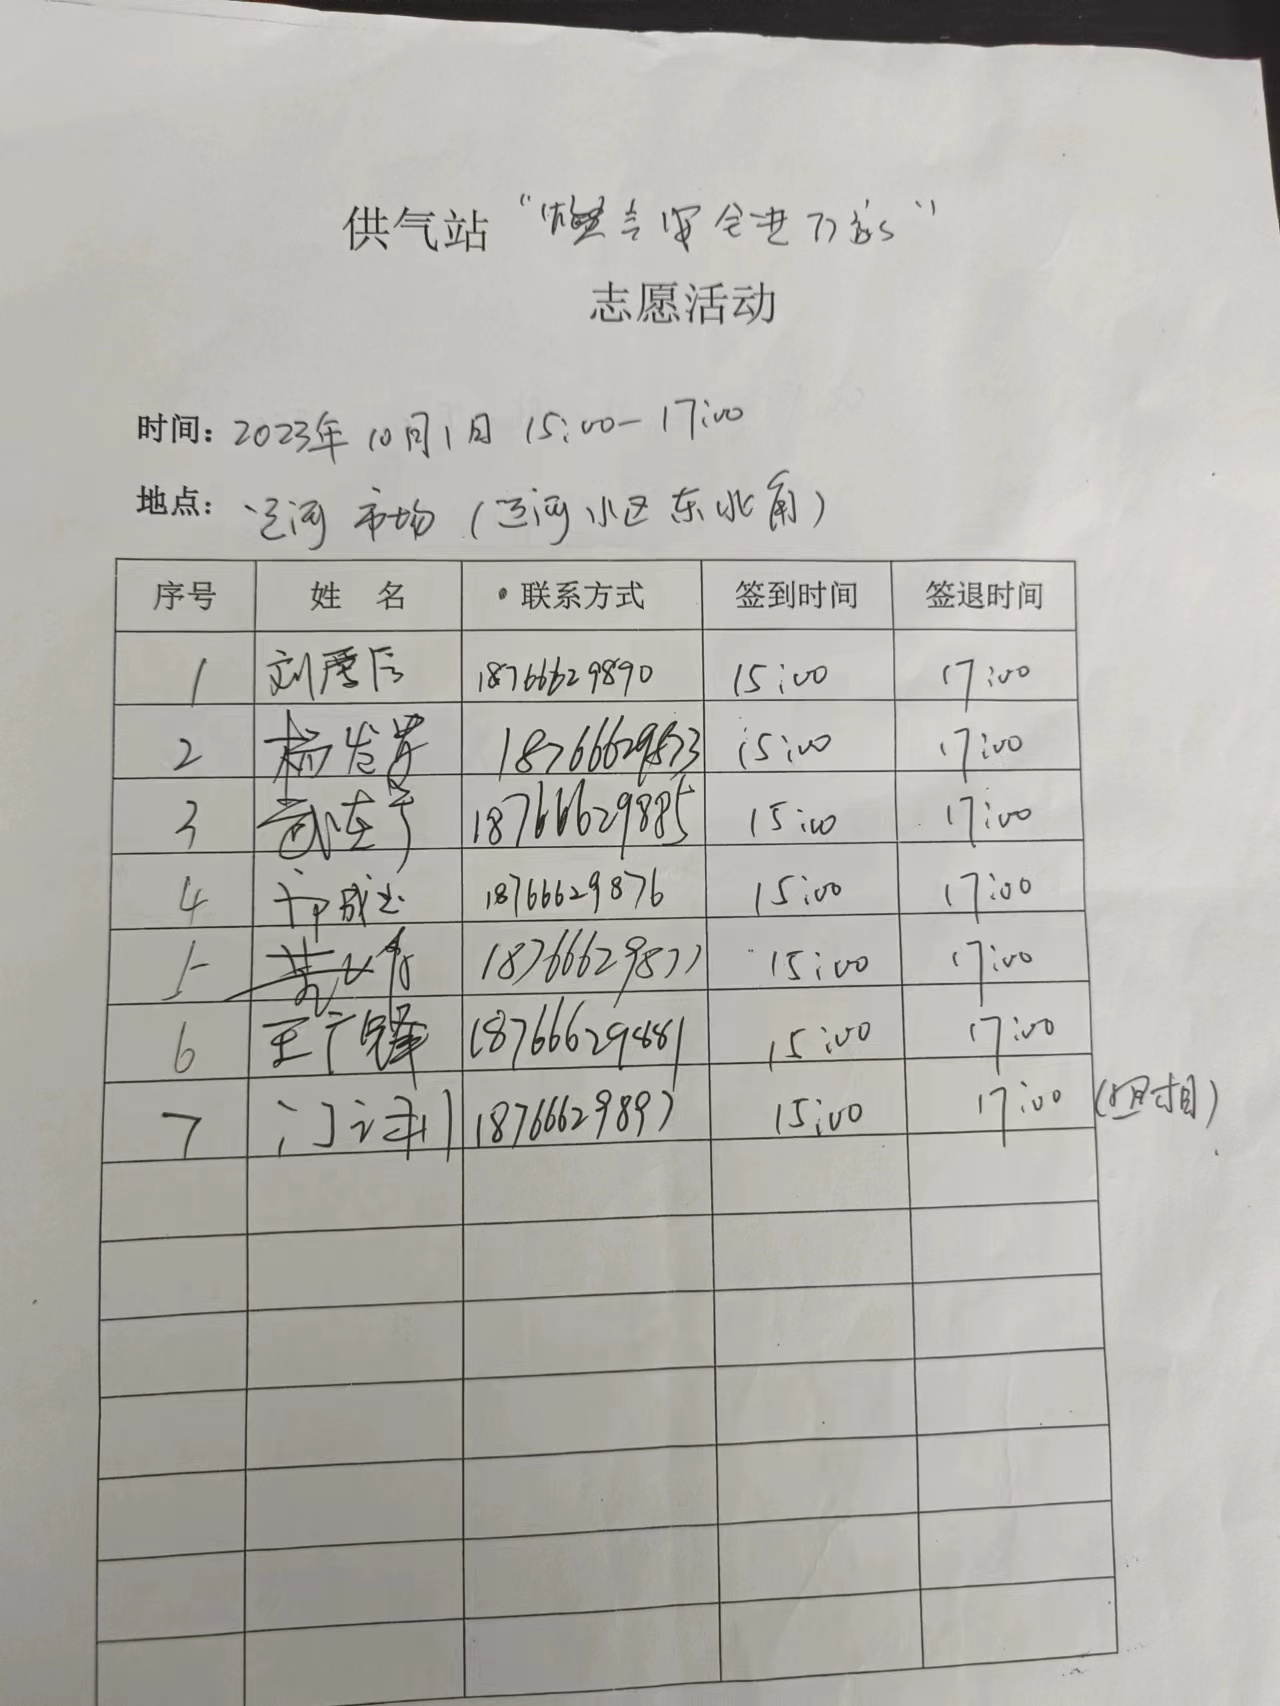 供气站“燃气安全进万家”
志愿活动
时间：2023年10月1日 15:00-17:00
地点：运河市场（运河小区东北角）
序号 姓名 联系方式 签到时间 签退时间
1 刘 18766629890 15:00 17:00
2 杨 18766629873 15:00 17:00
3 武 18766629885 15:00 17:00
4 成 18766629876 15:00 17:00
5 18766629877 15:00 17:00
6 王广 18766629881 15:00 17:00
7 18766629897 15:00 17:00